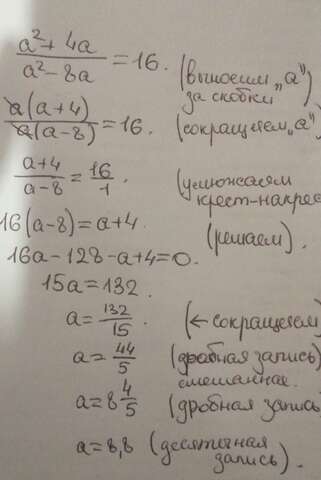 (a²+4a)/(a²-8a) = 16. (выносим „а"
за скобки)
a(a+4)/a(a-8) = 16. (сокращаем „а")
(a+4)/(a-8) = 16/1. (умножаем
крест-накрес
16(a-8)=a+4. (решаем).
16a-128-a+4=0.
15a=132.
a=132/15. (← сокращаем)
a=44/5 (дробная запись)
смешанная.
a=8 4/5 (дробная запись
a=8,8 (десятичная
запись).